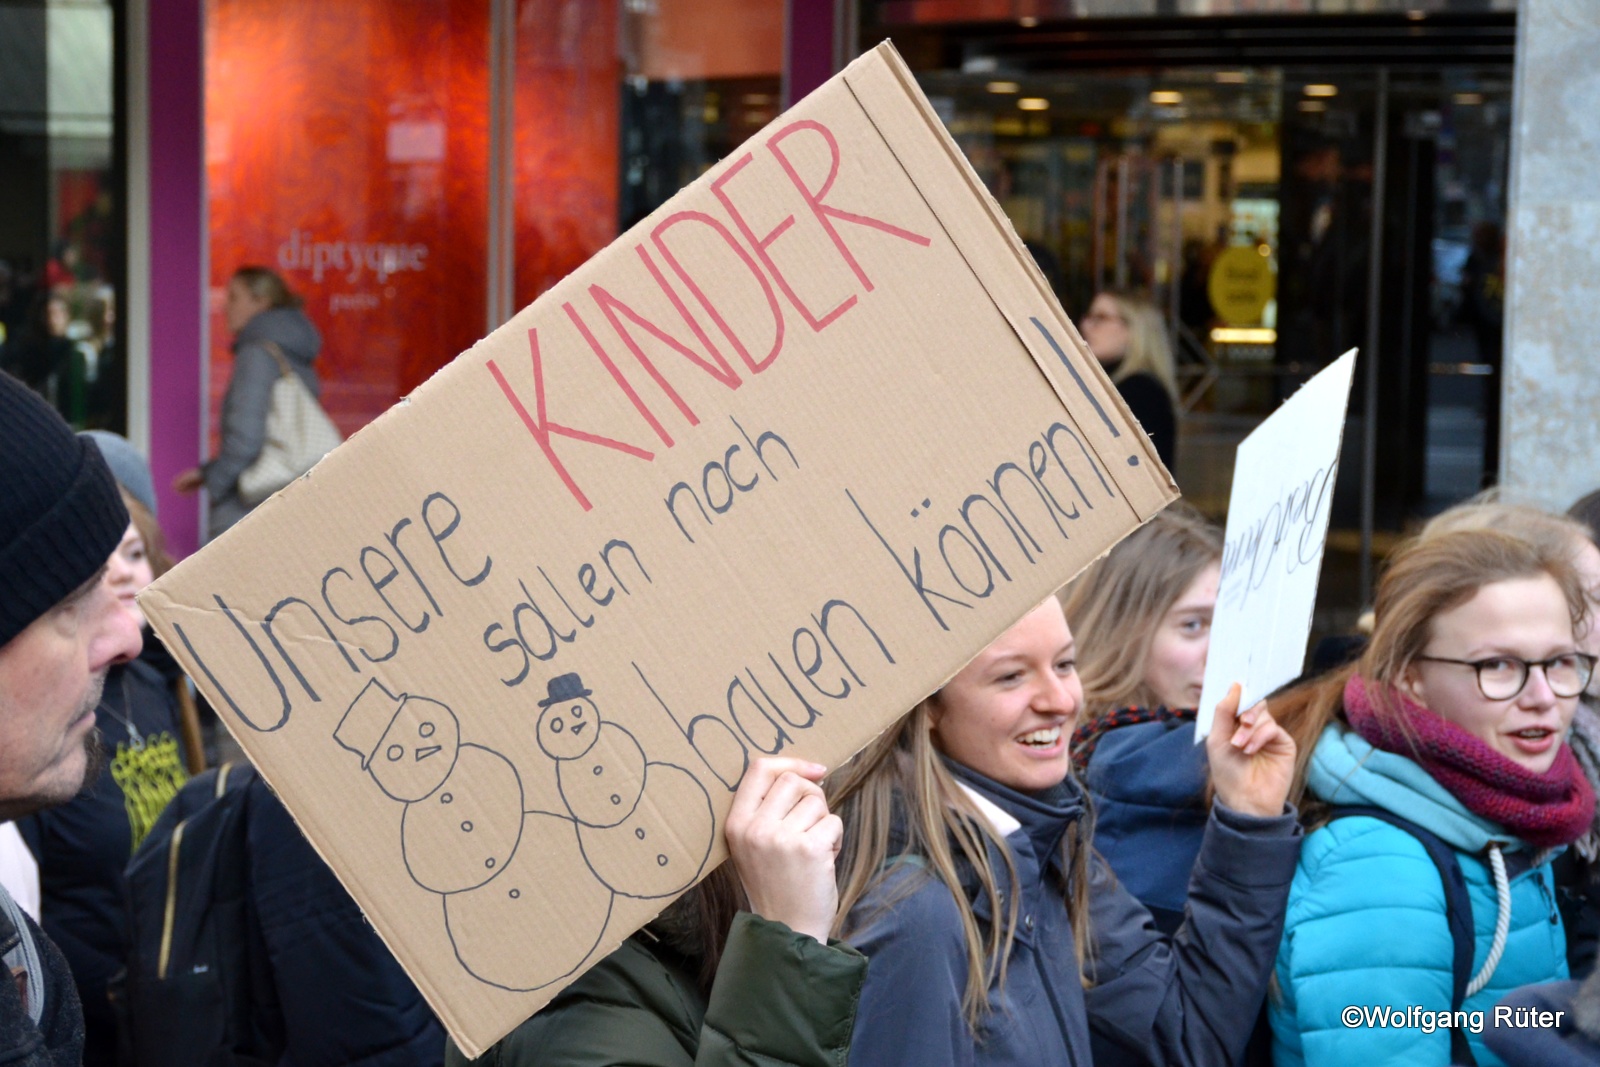 diptyque
paris
Unsere KINDER
sollen noch
bauen können!
©Wolfgang Rüter